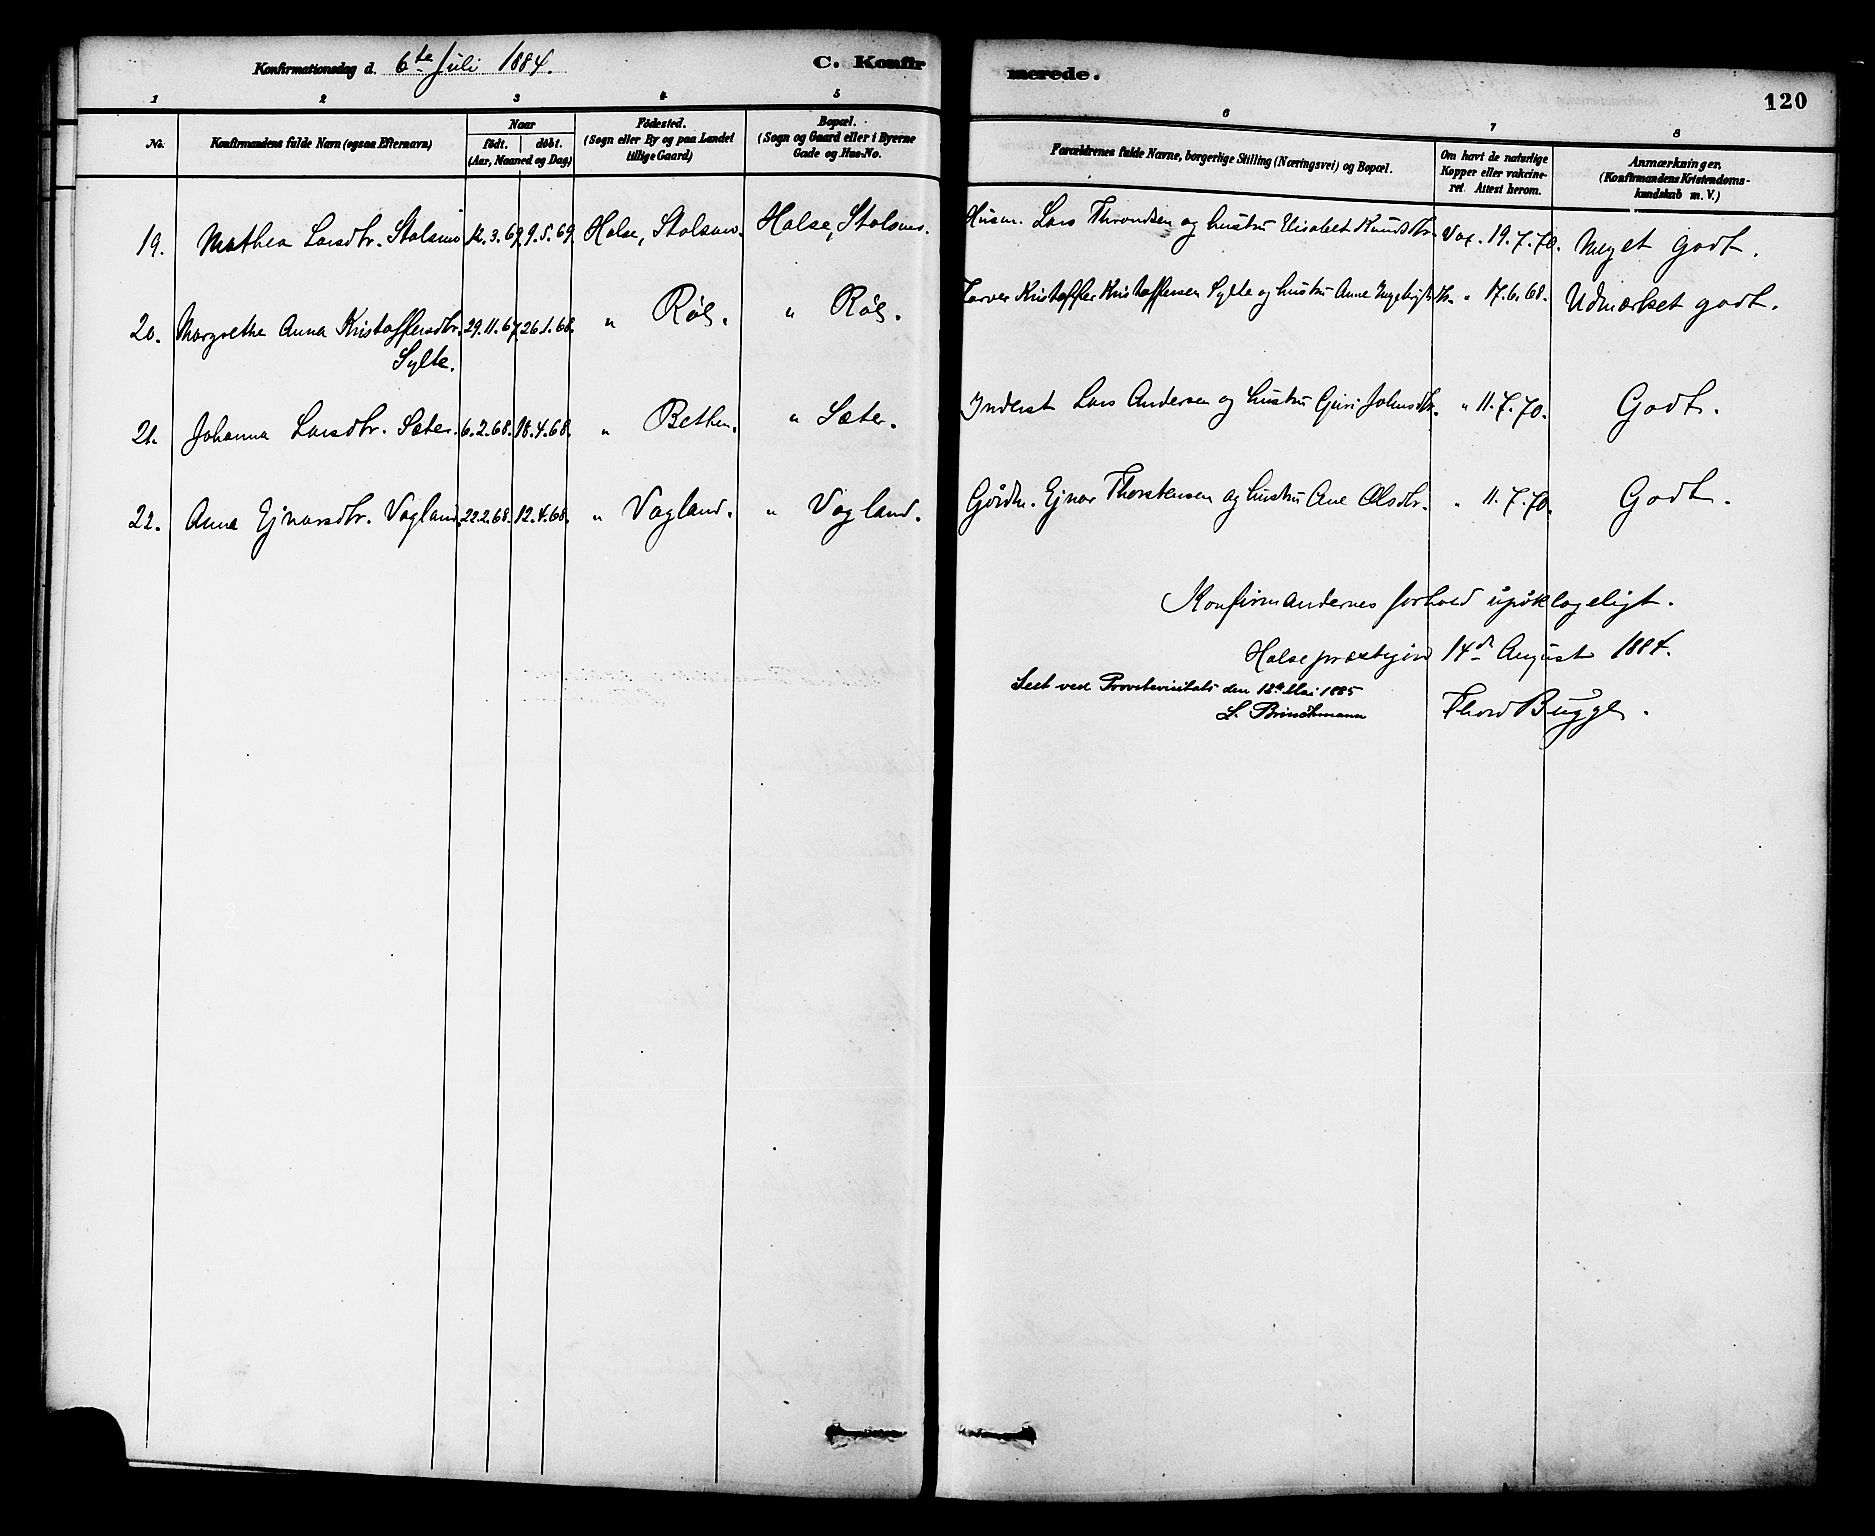 Konfirmationsdag d. 6te Juli 1884.
C. Konfir
merede.
120
1 2 3 4 5 6 7 8
No.
Konfirmandens fulde Navn (ogsaa Efternavn)
Naar
født. døbt.
(Aar, Maaned og Dag)
Fødested.
(Sogn eller By og paa Landet
tillige Gaard)
Bopæl.
(Sogn og Gaard eller i Byerne
Gade og Hus-No.
Forældrenes fulde Navne, borgerlige Stilling (Næringsvei) og Bopæl.
Om havt de naturlige
Kopper eller vakcine-
ret. Attest herom.
Anmærkninger,
(Konfirmandens Kristendoms-
kundskab m. V.)
19. Mathea Larsdtr. 3.69. 9.5.69 Halse, Halse, Husm. Lars Throndsen og hustru Elisabet Knudsdtr. Vax. 19.7.70. Meget godt.
20. Margrethe Anna Kristoffersdtr. 29.11.67. 26.1.68. " Røe. " Røe. Kristoffer Kristoffersen Sylte og hustru Anne " 17.6.68. Udmærket godt.
Sylte.
21. Johanna Larsdtr. Sæter. 6.2.68. 18.4.68. " Bethen. " Sæter. Inderst Lars Andersen og hustru Guri Johnsdtr. " 11.7.70. Godt.
22. Anna Ejnarsdtr. Vagland. 22.2.68. 12.4.68. " Vagland. " Vagland. Gårdm. Ejnar Thorstensen og hustru Ane Olsdtr. " 11.7.70. Godt.
Konfirmandernes forhold upåklageligt.
Halse præstegård 14de August 1884.
Seet ved Provstevisitats den 18de Mai 1885
S. Brinchmann
Thord Bugge.